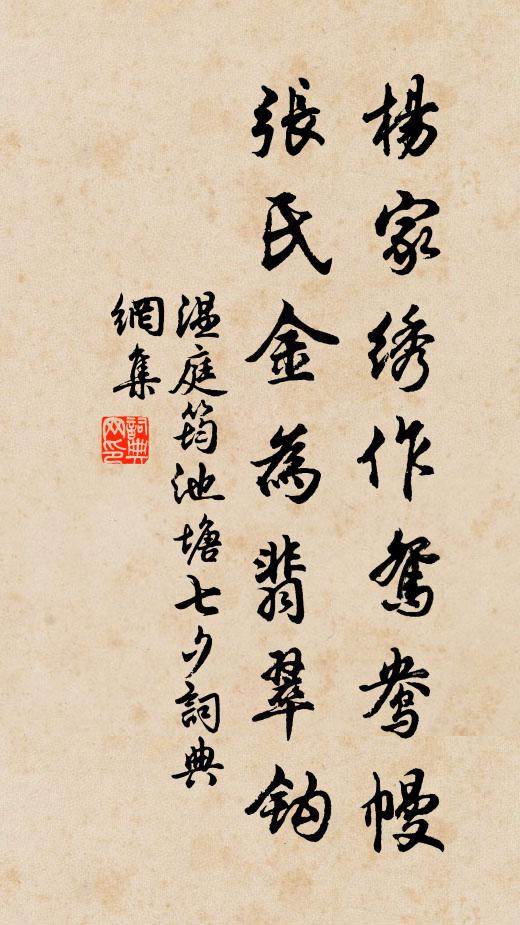 楊家绣作鴛鴦幔
張氏金為翡翠鈎
温庭筠池塘七夕詞典
網集
詞典
网印